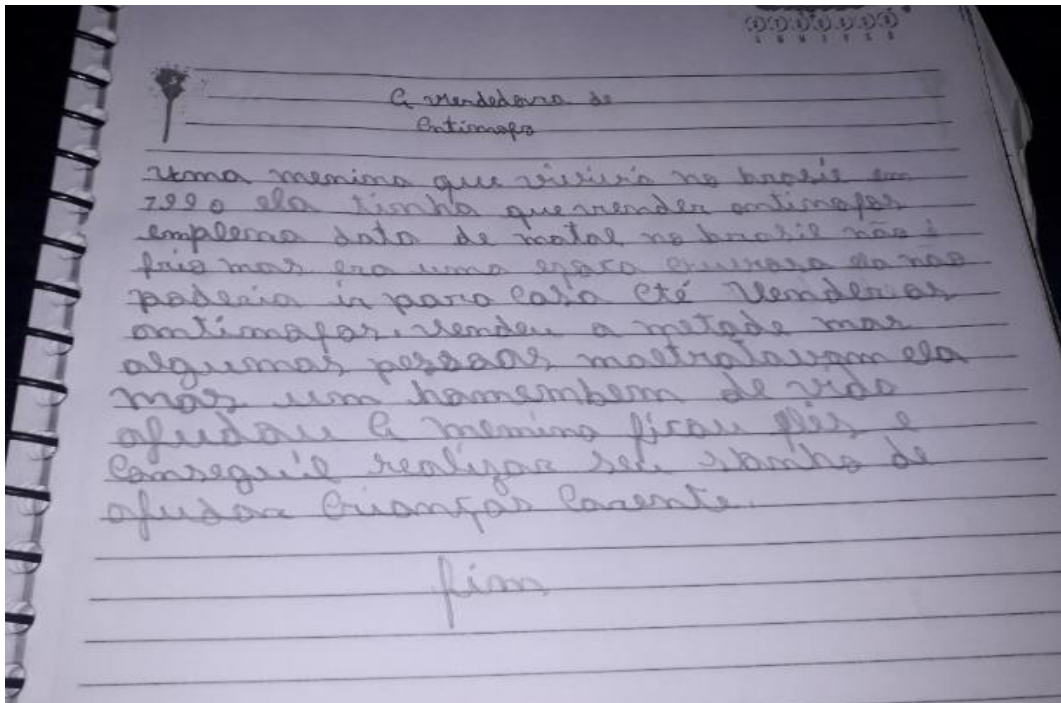 A vendedora de
Antimofo
uma menina que vivivà no brasil em
1990 ela tinha que vender antimofos
emplema data de natal no brasil não é
frio mas era uma epaca chuvosa ela não
poderia ir para casa até vender os
antimofos. vendeu a metade mas
algumas pessoas maltratavam ela
mas um homembem de vida
ajudou a menina ficou fiis e
conseguil realizar seu sonho de
ajudar crianças carente.
fim